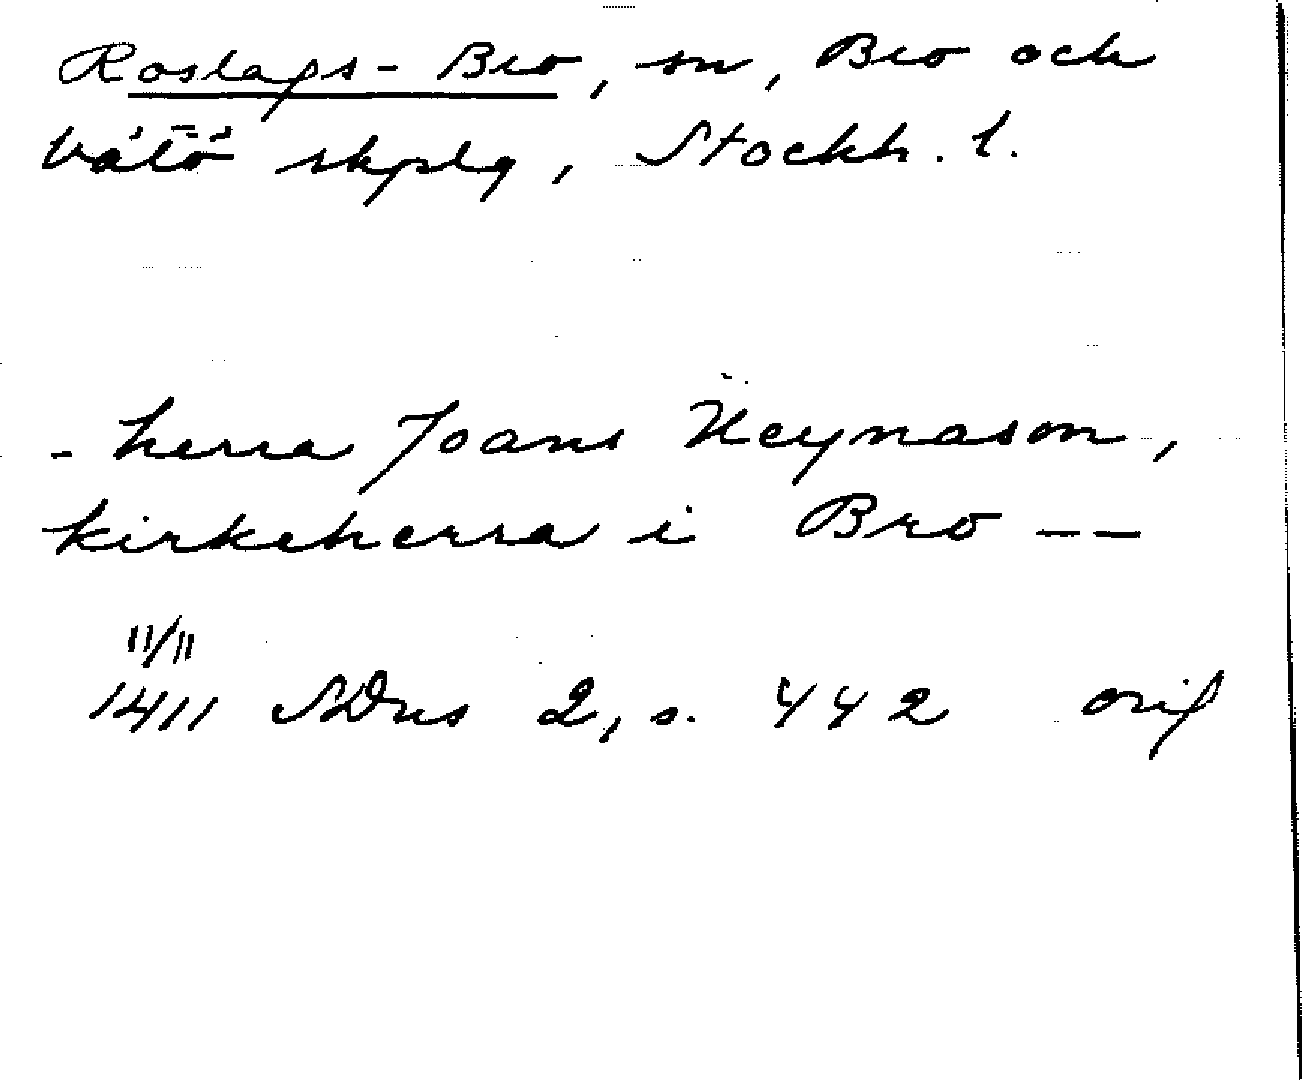 Roslags-Bro, sn, Bro och
Vätö skplg, Stockh. l.
- herra Joans Heynason,
kirkeherra i Bro --
11/11
1411 SDns 2, s. 442 orig